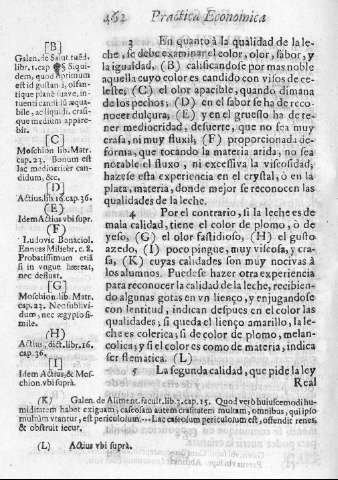 462 Practica Economica
3 En quanto à la qualidad de la le-
che, se debe examinar el color, olor, sabor, y
la igualdad, (B) calificandose por mas noble
aquella cuyo color es candido con visos de ce-
leste, (C) el olor apacible, quando dimana
de los pechos; (D) en el sabor se ha de reco-
nocer dulçura, (E) y en el gruesso ha de te-
ner mediocridad, desuerte, que no sea muy
crasa, ni muy fluxil; (F) proporcionada de-
fórma, que tocando la materia arida, no sea
notable el fluxo, ni excessiva la viscosidad,
hazese esta experiencia en el crystal, ò en la
plata, materia, donde mejor se reconocen las
qualidades de la leche.
4 Por el contrario, si la leche es de
mala calidad, tiene el color de plomo, ò de
yeso. (G) el olor fastidioso, (H) el gusto
azedo, (I) poco pingue, muy viscosa, y cra-
sa, (K) cuyas calidades son muy nocivas à
los alumnos. Puedese hazer otra experiencia
para reconocer la calidad de la leche, recibien-
do algunas gotas en vn lienço, y enjugandose
con lentitud, indican despues en el color las
qualidades; si queda el lienço amarillo, la le-
che es colerica, si de color de plomo, melan-
colica; y si el color es como de materia, indica
ser flematica. (L)
5 La segunda calidad, que pide la ley
Real
[B]
Galen. de Salut tuẽd.
libr. 1. cap Siqui-
dem, quod optimum
est id gustanti, olfan-
tique planè suave, in-
tuenti candidũ æqua-
bile, ac liquidi, crasi-
que medium appare-
bit.
[C]
Moschion lib. Matr.
cap. 23. Bonum est
lac mediocriter can-
didum, &c.
[D]
Actius, lib 16. cap. 36.
(E)
Idem Actius vbi supr.
(F)
Ludovic Bonaciol.
Enneas Muliebr. c. 8.
Probatissimum etiã
si in vngue hæreat,
nec defluat.
[G]
Moschion. lib. Matr.
cap. 23. Nec sublivi-
dum, nec ægypto si-
mile.
(H)
Actius, dict. libr. 16.
cap. 36.
[I]
Idem Actius, & Mos-
chion. vbi suprà.
(K) Galen. de Aliment. facult. lib. 3. cap. 15. Quod verò huiuscemodi hu-
miditatem habet exiguam, caseosam autem crassitatem multam, omnibus, qui ipso
multùm vtuntur, est periculosum---Lac caseosum periculosum est, offendit renes,
& obstruit iecur.
(L) Actius vbi suprà.